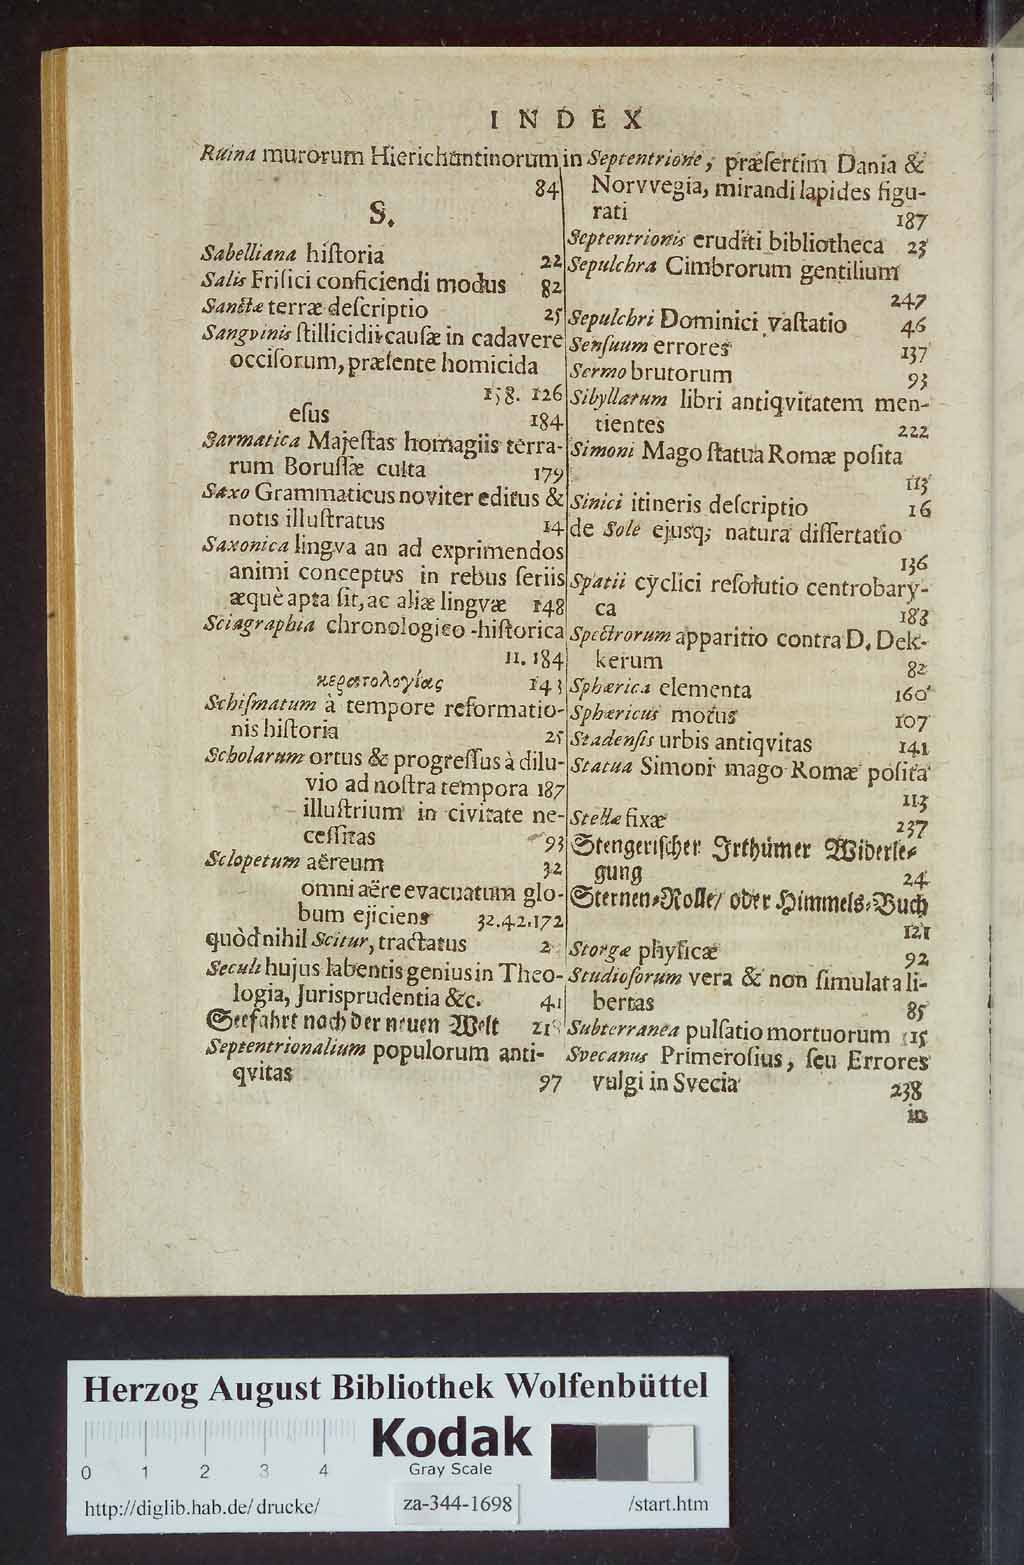 INDEX
Ruina murorum Hierichuntinorum
84
S.
Sabelliana hiſtoria 22
Salis Friſici conficiendi modus 82
Sanctæ terræ deſcriptio 25
Sangvinis ſtillicidii cauſæ in cadavere
occiſorum, præſente homicida
158. 126
eſus 184
Sarmatica Majeſtas homagiis terra-
rum Boruſſæ culta 179
Saxo Grammaticus noviter editus &
notis illuſtratus 14
Saxonica lingva an ad exprimendos
animi conceptus in rebus ſeriis
æquè apta ſit, ac aliæ lingvæ 148
Sciagraphia chronologico-hiſtorica
11. 184
κερατολογίας 143
Schiſmatum à tempore reformatio-
nis hiſtoria 25
Scholarum ortus & progreſſus à dilu-
vio ad noſtra tempora 187
illuſtrium in civitate ne-
ceſſitas 93
Sclopetum aëreum 32
omni aëre evacuatum glo-
bum ejiciens 32.42.172
quòd nihil Scitur, tractatus 2
Seculi hujus labentis genius in Theo-
logia, Jurisprudentia &c. 41
Seefahrt nach der neuen Welt 218
Septentrionalium populorum anti-
qvitas 97
in Septentrione, præſertim Dania &
Norvvegia, mirandi lapides figu-
rati 187
Septentrionis eruditi bibliotheca 23
Sepulchra Cimbrorum gentilium
247
Sepulchri Dominici vaſtatio 46
Senſuum errores 137
Sermo brutorum 93
Sibyllarum libri antiqvitatem men-
tientes 222
Simoni Mago ſtatua Romæ poſita
113
Sinici itineris deſcriptio 16
de Sole ejusq; natura diſſertatio
136
Spatii cyclici reſolutio centrobary-
ca 183
Spectrorum apparitio contra D. Dek-
kerum 82
Sphærica elementa 160
Sphæricus motus 107
Stadenſis urbis antiqvitas 141
Statua Simoni mago Romæ poſita
113
Stellæ fixæ 237
Stengeriſcher Irthümer Widerle-
gung 24
Sternen-Rolle/ oder Himmels-Buch
121
Storgæ phyſicæ 92
Studioſorum vera & non ſimulata li-
bertas 85
Subterranea pulſatio mortuorum 15
Svecanus Primeroſius, ſeu Errores
vulgi in Svecia 238
in
Herzog August Bibliothek Wolfenbüttel
Kodak
Gray Scale
0 1 2 3 4
http://diglib.hab.de/drucke/ za-344-1698 /start.htm